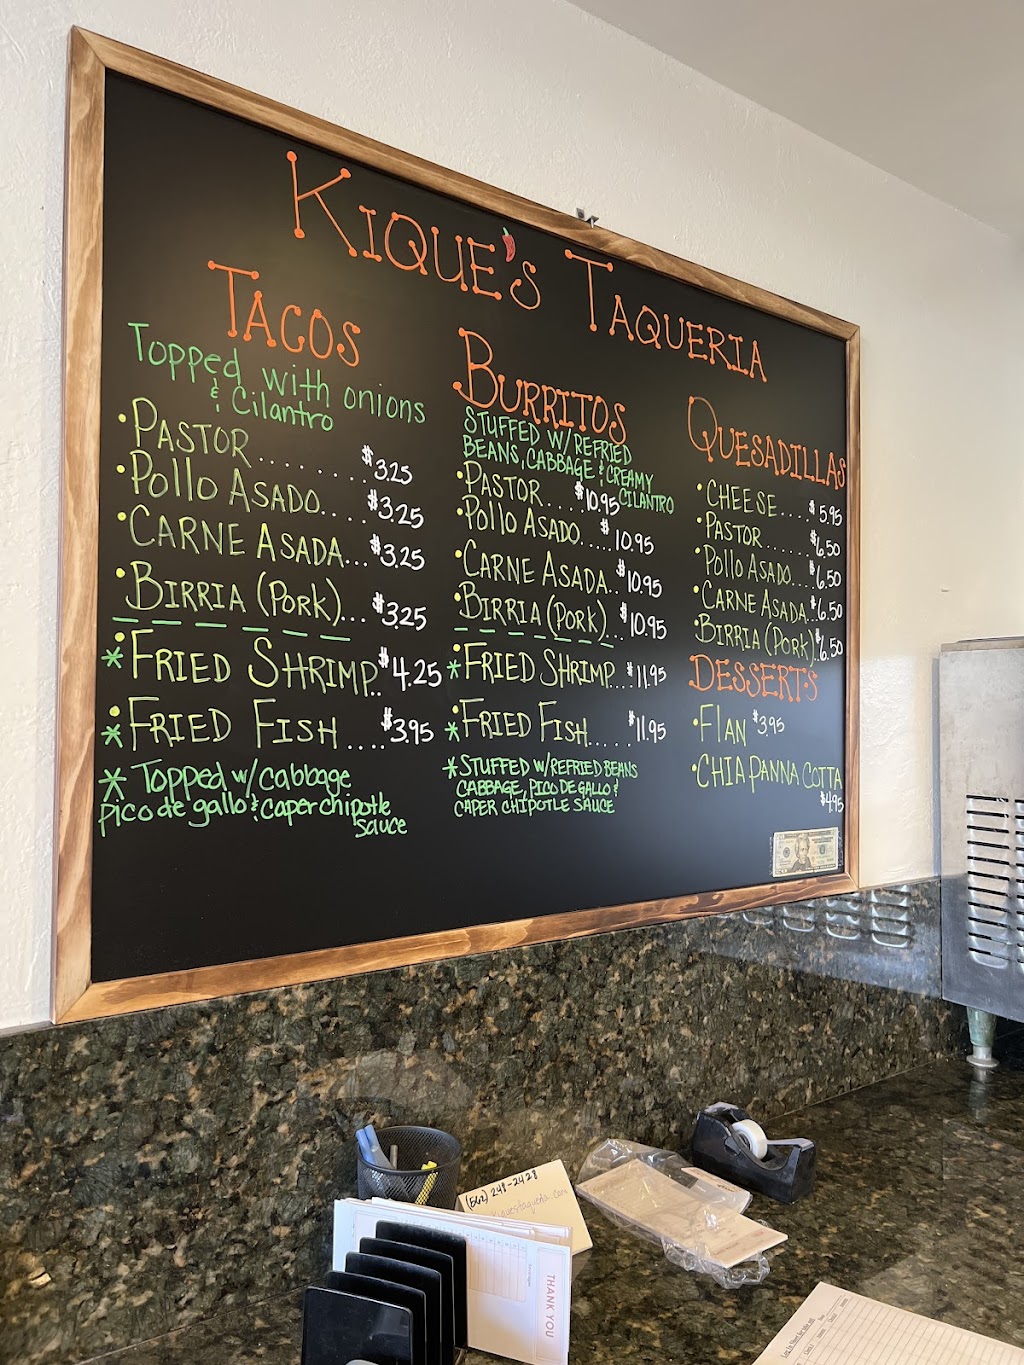 KIQUE'S TAQUERIA
TACOS
Topped with onions
& Cilantro
• PASTOR........ $3.25
• Pollo ASADO.... $3.25
• CARNE ASADA... $3.25
• BIRRIA (PORK)... $3.25
* FRIED SHRIMP.. $4.25
* FRIED FISH .... $3.95
* Topped w/ cabbage
pico de gallo & caper chipotle
sauce
BURRITOS
STUFFED W/ REFRIED
BEANS, CABBAGE & CREAMY
CILANTRO
• PASTOR.... $10.95
• Pollo ASADO..... $10.95
• CARNE ASADA.. $10.95
• BIRRIA (PORK)... $10.95
* FRIED SHRIMP.... $11.95
* FRIED FISH..... $11.95
* STUFFED W/ REFRIED BEANS
CABBAGE, PICO DE GALLO &
CAPER CHIPOTLE SAUCE
QUESADILLAS
• CHEESE.... $5.95
• PASTOR....... $6.50
• Pollo ASADO.... $6.50
• CARNE ASADA. $6.50
• BIRRIA (PORK). $6.50
DESSERTS
• FlAN $3.95
• CHIA PANNA COTTA
$4.95
(562) 248-2428
THANK YOU